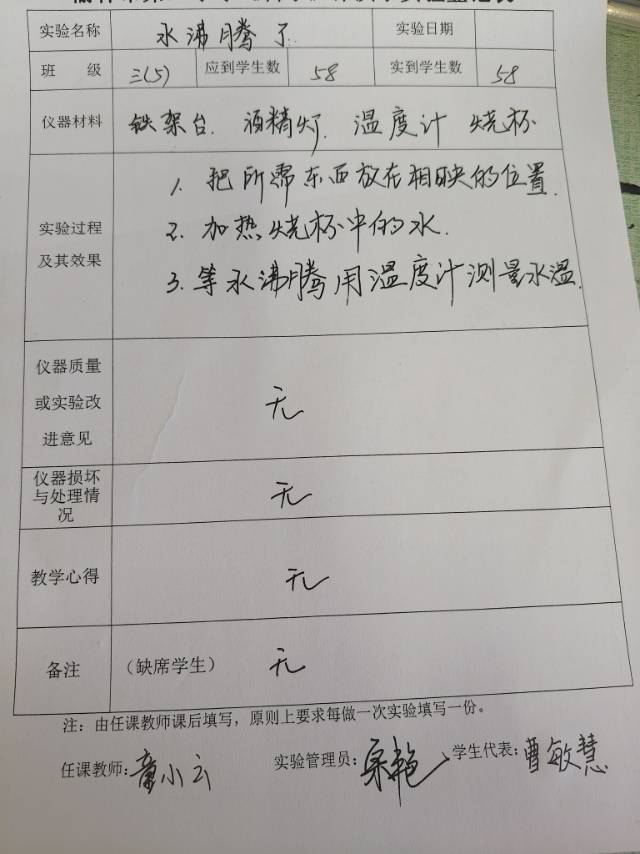 实验名称 水沸腾了 实验日期
班 级 三(5) 应到学生数 58 实到学生数 58
仪器材料 铁架台. 酒精灯. 温度计 烧杯
1. 把所需东西放在相映的位置.
实验过程
及其效果
2. 加热烧杯中的水.
3. 等水沸腾用温度计测量水温.
仪器质量
或实验改
进意见
无
仪器损坏
与处理情
况
无
教学心得 无
备注 (缺席学生) 无
注：由任课教师课后填写，原则上要求每做一次实验填写一份。
任课教师: 童小云 实验管理员: 学生代表: 曹敏慧